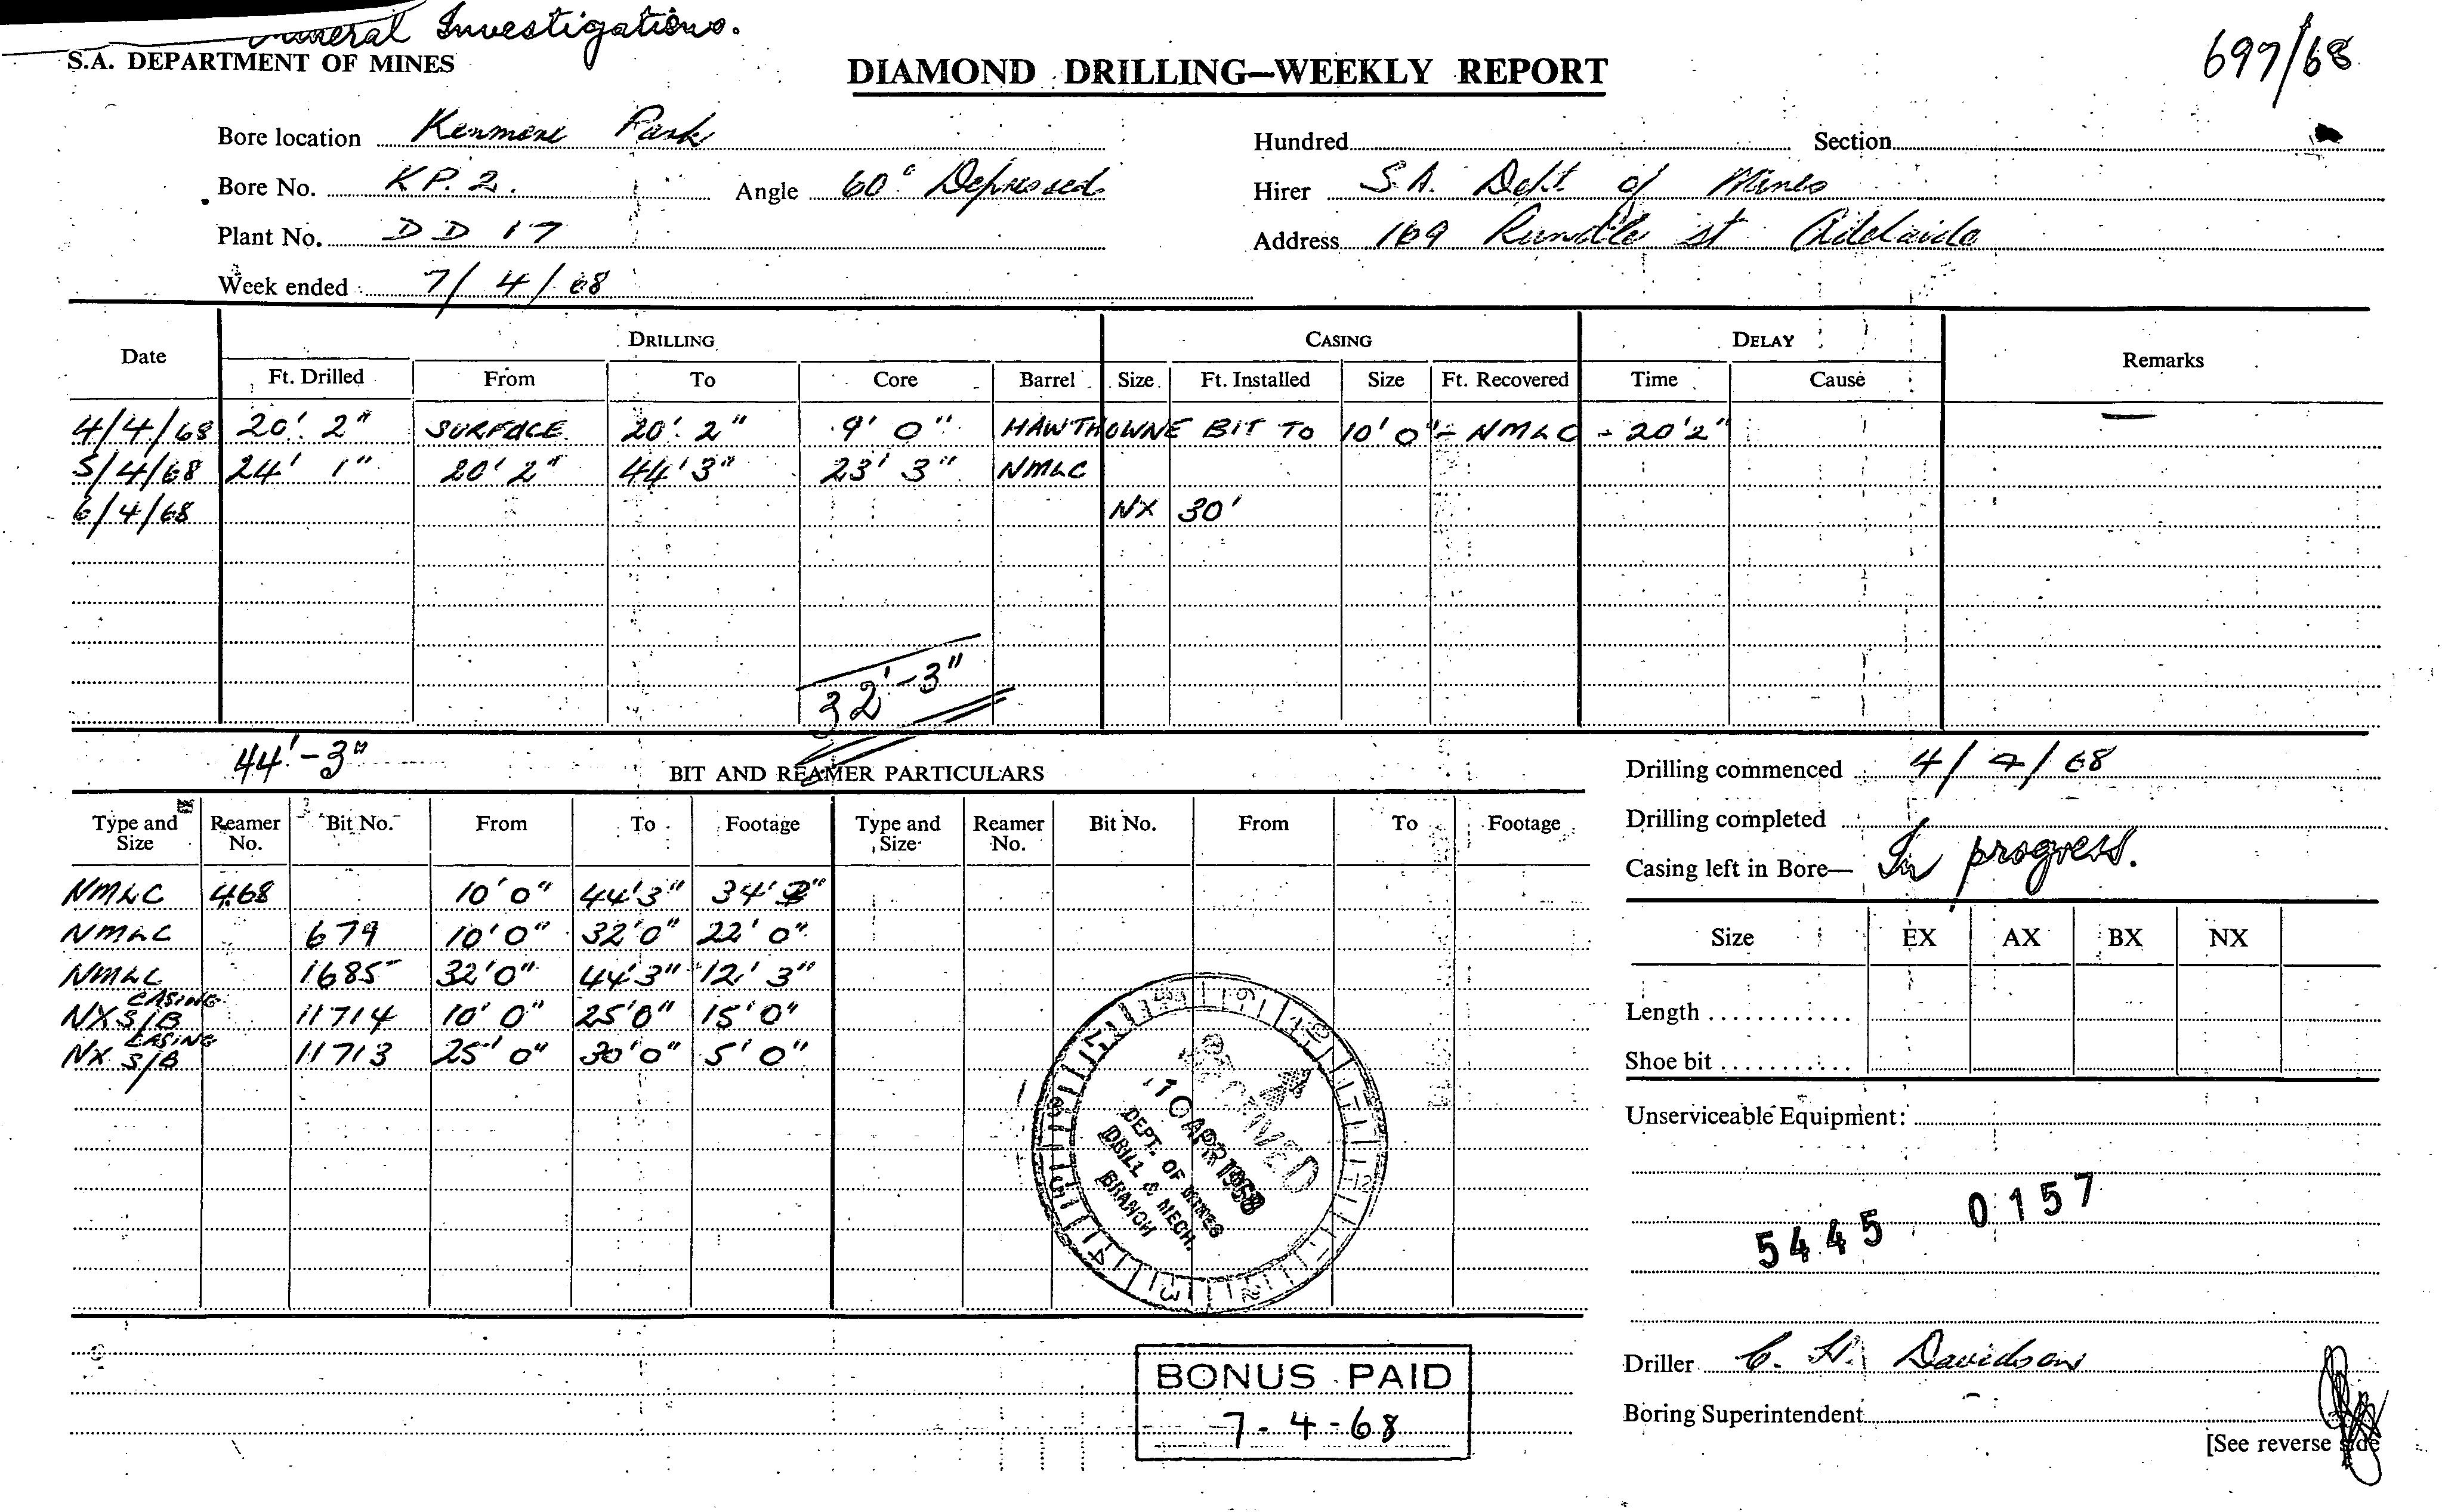 Mineral Investigations.
S.A. DEPARTMENT OF MINES
DIAMOND DRILLING—WEEKLY REPORT
697/68
Bore location Kenmore Park
Hundred Section
Bore No. KP. 2. Angle 60° Depressed
Hirer S.A. Dept. of Mines
Plant No. DD 17
Address 169 Rundle st Adelaide
Week ended 7/4/68
Date DRILLING CASING DELAY Remarks
Ft. Drilled From To Core Barrel Size Ft. Installed Size Ft. Recovered Time Cause
4/4/68 20'. 2" SURFACE 20'. 2" 9' 0" HAWTHOWNE BIT TO 10' 0" - NMLC - 20'2" —
5/4/68 24' 1" 20' 2" 44'3" 23' 3" NMLC
6/4/68 NX 30'
32'-3"
44'-3"
BIT AND REAMER PARTICULARS
Drilling commenced 4/4/68
Drilling completed
Casing left in Bore— In progress.
Type and Size Reamer No. Bit No. From To Footage Type and Size Reamer No. Bit No. From To Footage
NMLC 468 10' 0" 44'3" 34' 3"
NMLC 679 10' 0" 32'0" 22' 0"
NMLC 1685 32'0" 44'3" 12' 3"
NX CASING S/B 11714 10' 0" 25'0" 15' 0"
NX CASING S/B 11713 25' 0" 30'0" 5' 0"
Size EX AX BX NX
Length
Shoe bit
Unserviceable Equipment:
RECEIVED
10 APR 1968
DEPT. OF MINES
DRILL & MECH.
BRANCH
5445 0157
BONUS PAID
7-4-68
Driller C. H. Davidson
Boring Superintendent
[See reverse side